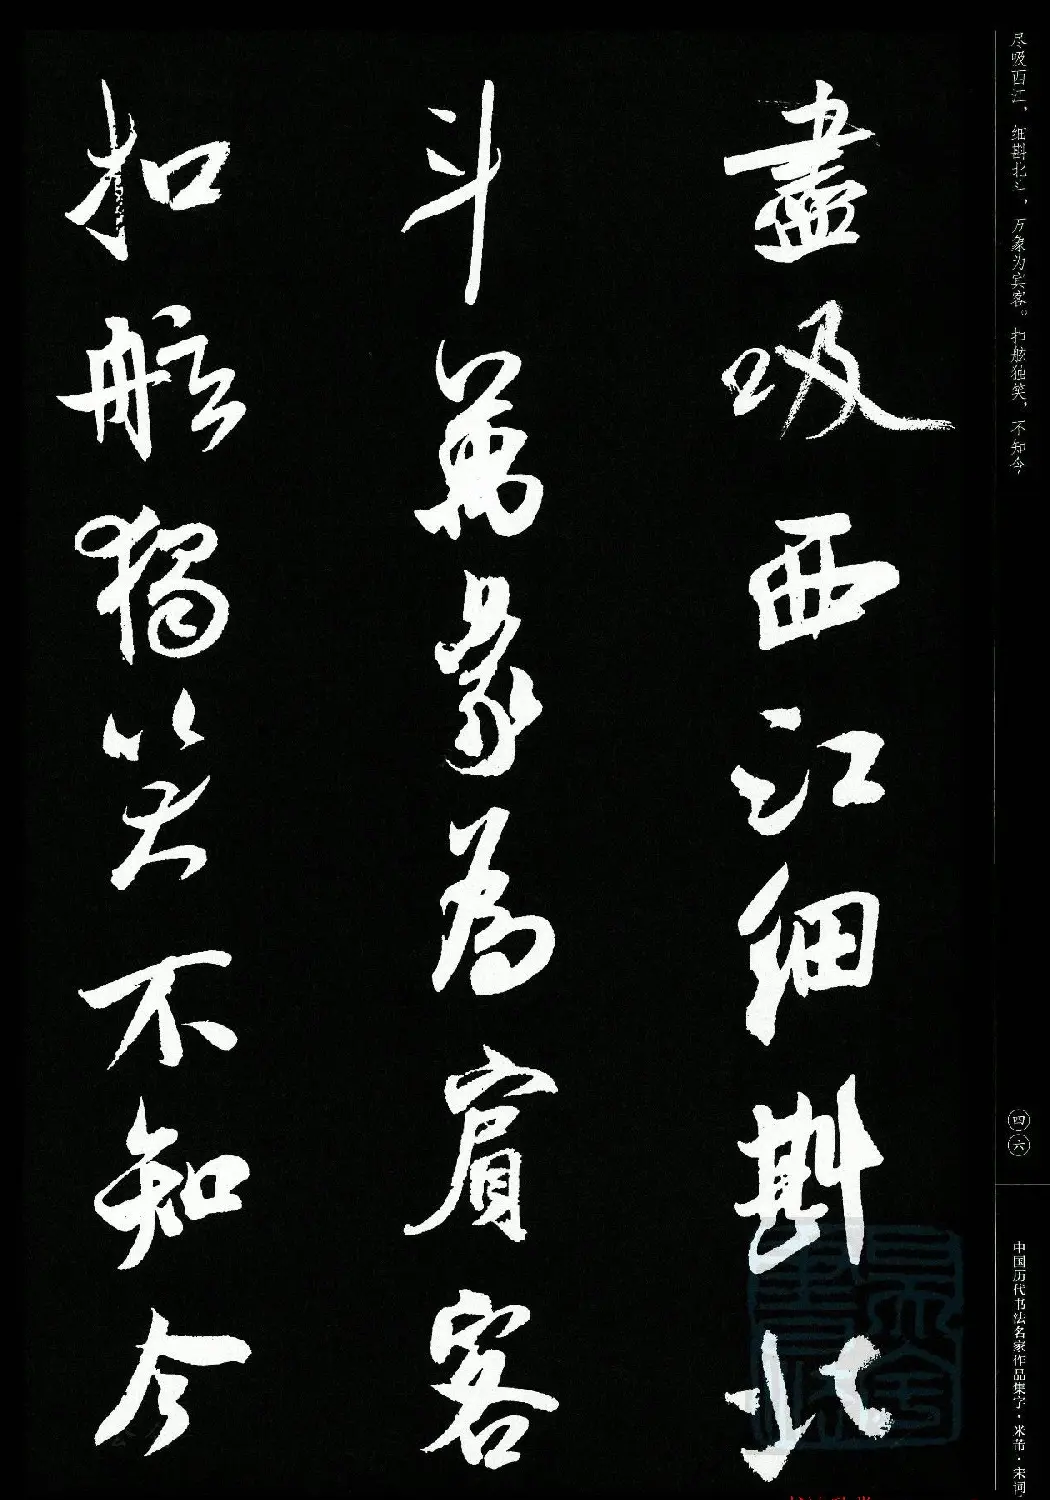 盡吸西江細斟北
斗萬象為賓客
扣舷獨笑不知今
尽吸西江，细斟北斗，万象为宾客。扣舷独笑，不知今
四六
中国历代书法名家作品集字·米芾·宋词